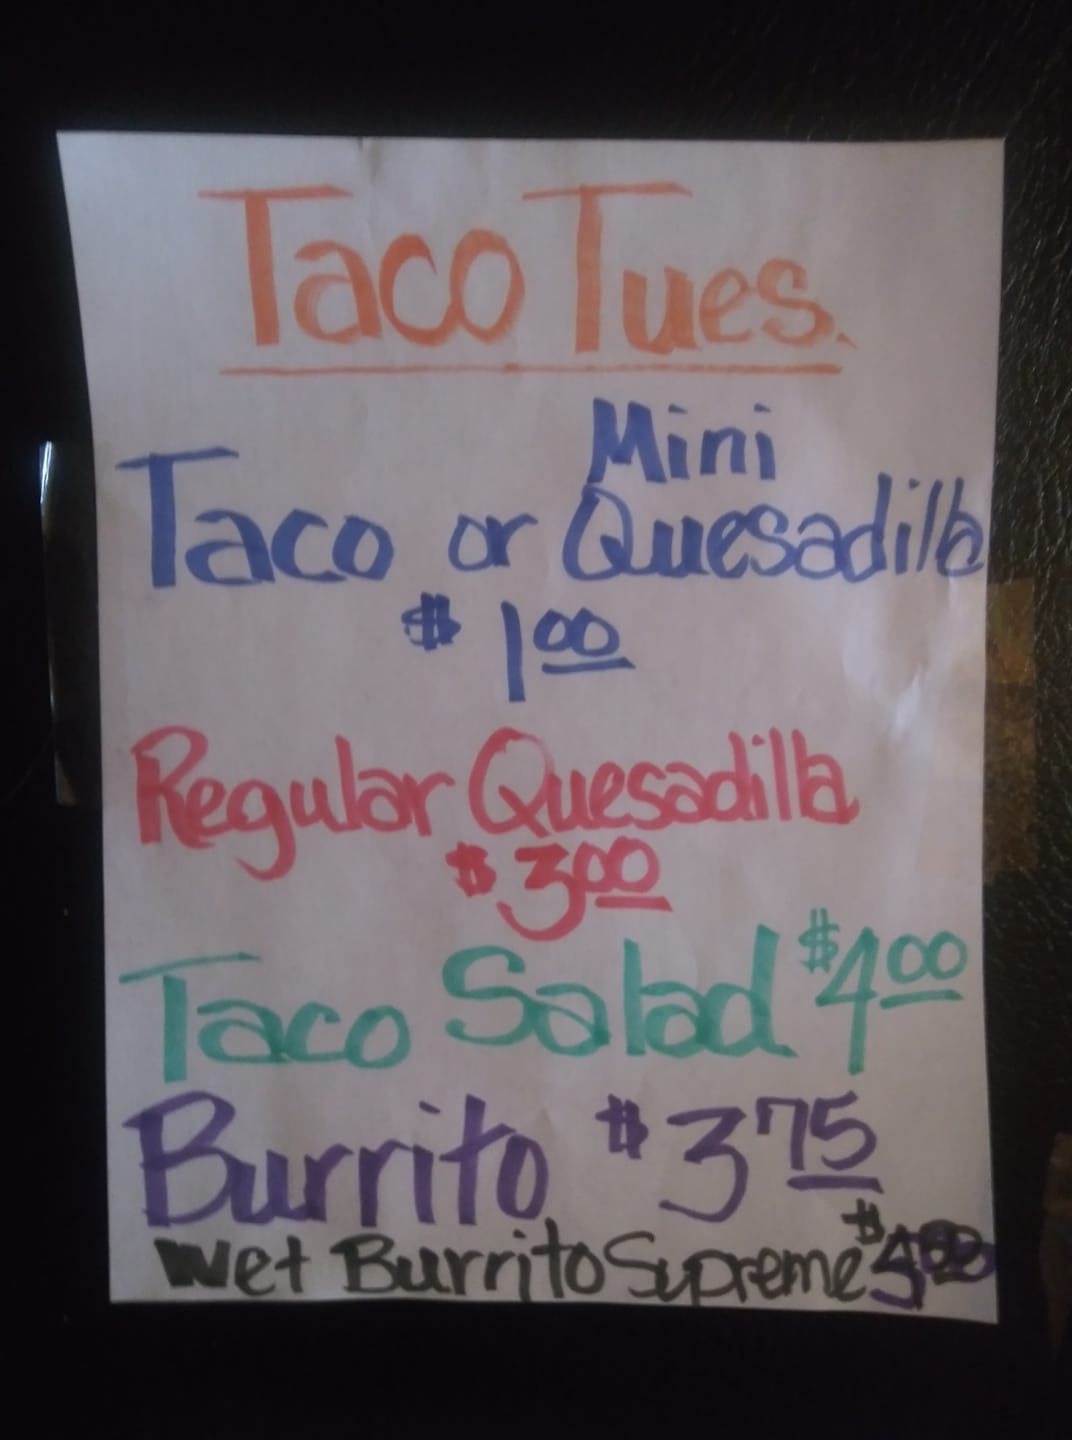 Taco Tues.
Mini
Taco or Quesadilla
$1.00
Regular Quesadilla
$3.00
Taco Salad $4.00
Burrito $3.75
Wet Burrito Supreme